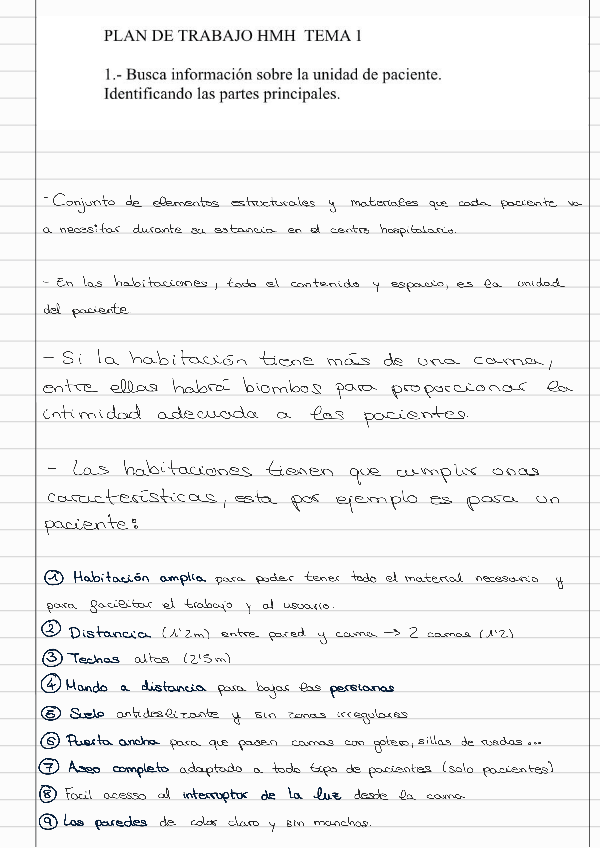 PLAN DE TRABAJO HMH TEMA 1
1.- Busca información sobre la unidad de paciente.
Identificando las partes principales.
- Conjunto de elementos estructurales y materiales que cada paciente va
a necesitar durante su estancia en el centro hospitalario.
- En las habitaciones, todo el contenido y espacio, es la unidad
del paciente
- Si la habitación tiene más de una cama,
entre ellas habrá biombos para proporcionar la
intimidad adecuada a los pacientes.
- Las habitaciones tienen que cumplir unas
características, esta por ejemplo es para un
paciente:
① Habitación amplia para poder tener todo el material necesario y
para facilitar el trabajo y al usuario.
② Distancia (1'2m) entre pared y cama → 2 camas (1'2)
③ Techos altos (2'5m)
④ Mando a distancia para bajar las persianas
⑤ Suelo antideslizante y sin zonas irregulares
⑥ Puerta ancha para que pasen camas con gotero, sillas de ruedas...
⑦ Aseo completo adaptado a todo tipo de pacientes (solo pacientes)
⑧ Facil acceso al interruptor de la luz desde la cama.
⑨ Las paredes de color claro y sin manchas.